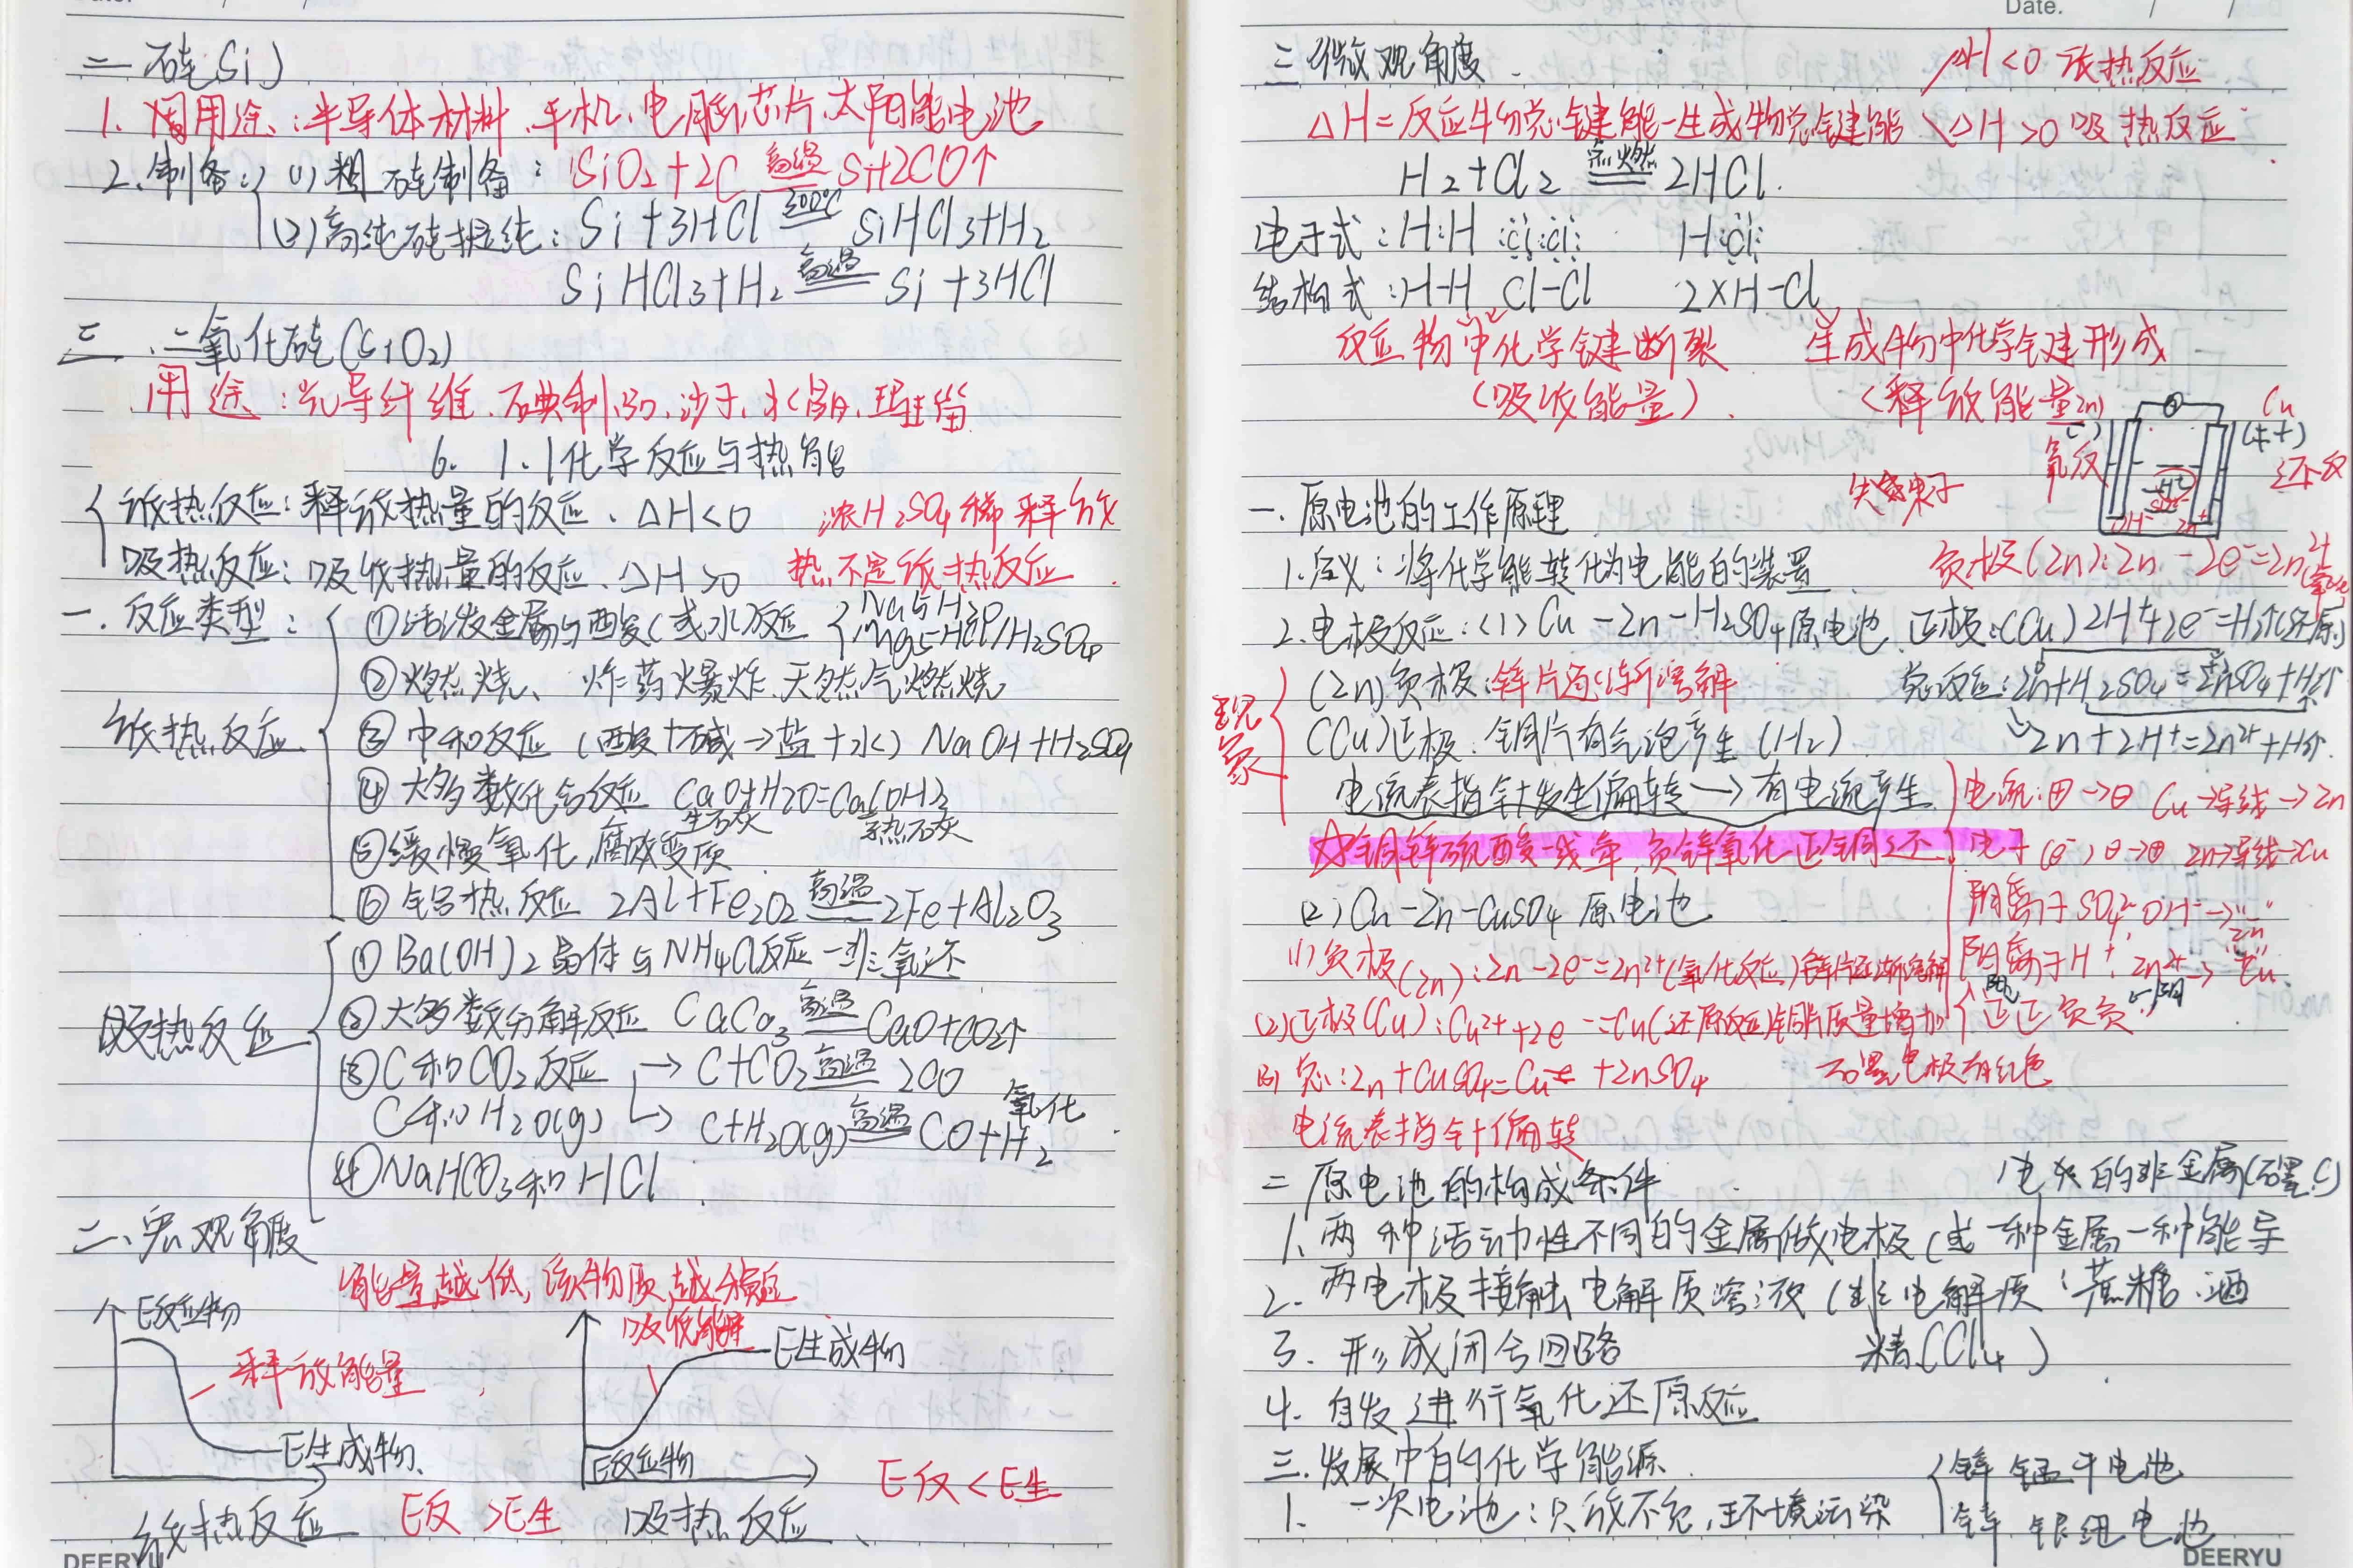 二 硅(Si)
1. 用途：半导体材料、手机、电脑芯片、太阳能电池
2. 制备：(1) 粗硅制备：SiO₂+2C 高温 Si+2CO↑
(2) 高纯硅提纯：Si+3HCl 300℃ SiHCl₃+H₂
SiHCl₃+H₂ 高温 Si+3HCl
三、二氧化硅(SiO₂)
用途：光导纤维、石英制品、沙子、水晶、玛瑙
6.1.1 化学反应与热能
放热反应：释放热量的反应、△H<0 浓H₂SO₄稀释放
吸热反应：吸收热量的反应、△H>0 热,不是放热反应
一. 反应类型：
放热反应
①活泼金属与酸(或水)反应 Na与H₂O Mg与HCl/H₂SO₄
②燃烧、炸药爆炸、天然气燃烧
③中和反应 (酸+碱→盐+水) NaOH+H₂SO₄
④大多数化合反应 CaO+H₂O=Ca(OH)₂
生石灰 熟石灰
⑤缓慢氧化,腐败变质
⑥铝热反应 2Al+Fe₂O₃ 高温 2Fe+Al₂O₃
吸热反应
①Ba(OH)₂晶体与NH₄Cl反应—非氧还
②大多数分解反应 CaCO₃ 高温 CaO+CO₂↑
③C和CO₂反应 → C+CO₂ 高温 2CO
C和H₂O(g) → C+H₂O(g) 高温 CO+H₂ 氧化
④NaHCO₃和HCl
二、宏观角度
能量越低,该物质越稳定
E反应物 释放能量 E生成物
吸收能量 E生成物 E反应物
放热反应 E反>E生
吸热反应 E反<E生
三 微观角度
△H=反应物总键能-生成物总键能
△H<0 放热反应
△H>0 吸热反应
H₂+Cl₂ 点燃 2HCl
电子式：H:H :Cl:Cl: H:Cl:
结构式：H-H Cl-Cl 2×H-Cl
反应物中化学键断裂 生成物中化学键形成
(吸收能量) (释放能量)
Zn (-) Cu (+)
氧反 还反
失电子
一. 原电池的工作原理
1. 定义：将化学能转化为电能的装置
负极(Zn)：Zn-2e⁻=Zn²⁺
2. 电极反应：(1) Cu-Zn-H₂SO₄原电池 正极：(Cu) 2H⁺+2e⁻=H₂↑(还原)
现象
(Zn)负极：锌片逐渐溶解
总反应：Zn+H₂SO₄=ZnSO₄+H₂↑
(Cu)正极：铜片有气泡产生(H₂)
Zn+2H⁺=Zn²⁺+H₂↑
电流表指针发生偏转→有电流产生
电流：⊕→⊖ Cu→导线→Zn
☆铜锌硫酸一线牵,负锌氧化正铜还
电子(e⁻)⊖→⊕ Zn→导线→Cu
(2) Cu-Zn-CuSO₄原电池
阴离子SO₄²⁻,OH⁻→"Zn"
(1)负极(Zn)：Zn-2e⁻=Zn²⁺(氧化反应)锌片逐渐溶解
阳离子H⁺,Zn²⁺→"Cu"
(2)正极(Cu)：Cu²⁺+2e⁻=Cu(还原反应)铜片质量增加
正正负负
(3)总：Zn+CuSO₄=Cu+ZnSO₄ 石墨电极有红色
电流表指针偏转
二 原电池的构成条件
1. 两种活动性不同的金属做电极(或一种金属一种能导
电的非金属(石墨C)
2. 两电极接触电解质溶液(非电解质：蔗糖、酒
精(CCl₄)
3. 形成闭合回路
4. 自发进行氧化还原反应
三. 发展中的化学能源
1. 一次电池：只放不充,环境污染
锌锰干电池
锌银纽电池
DEERYU
Date. / /
DEERYU